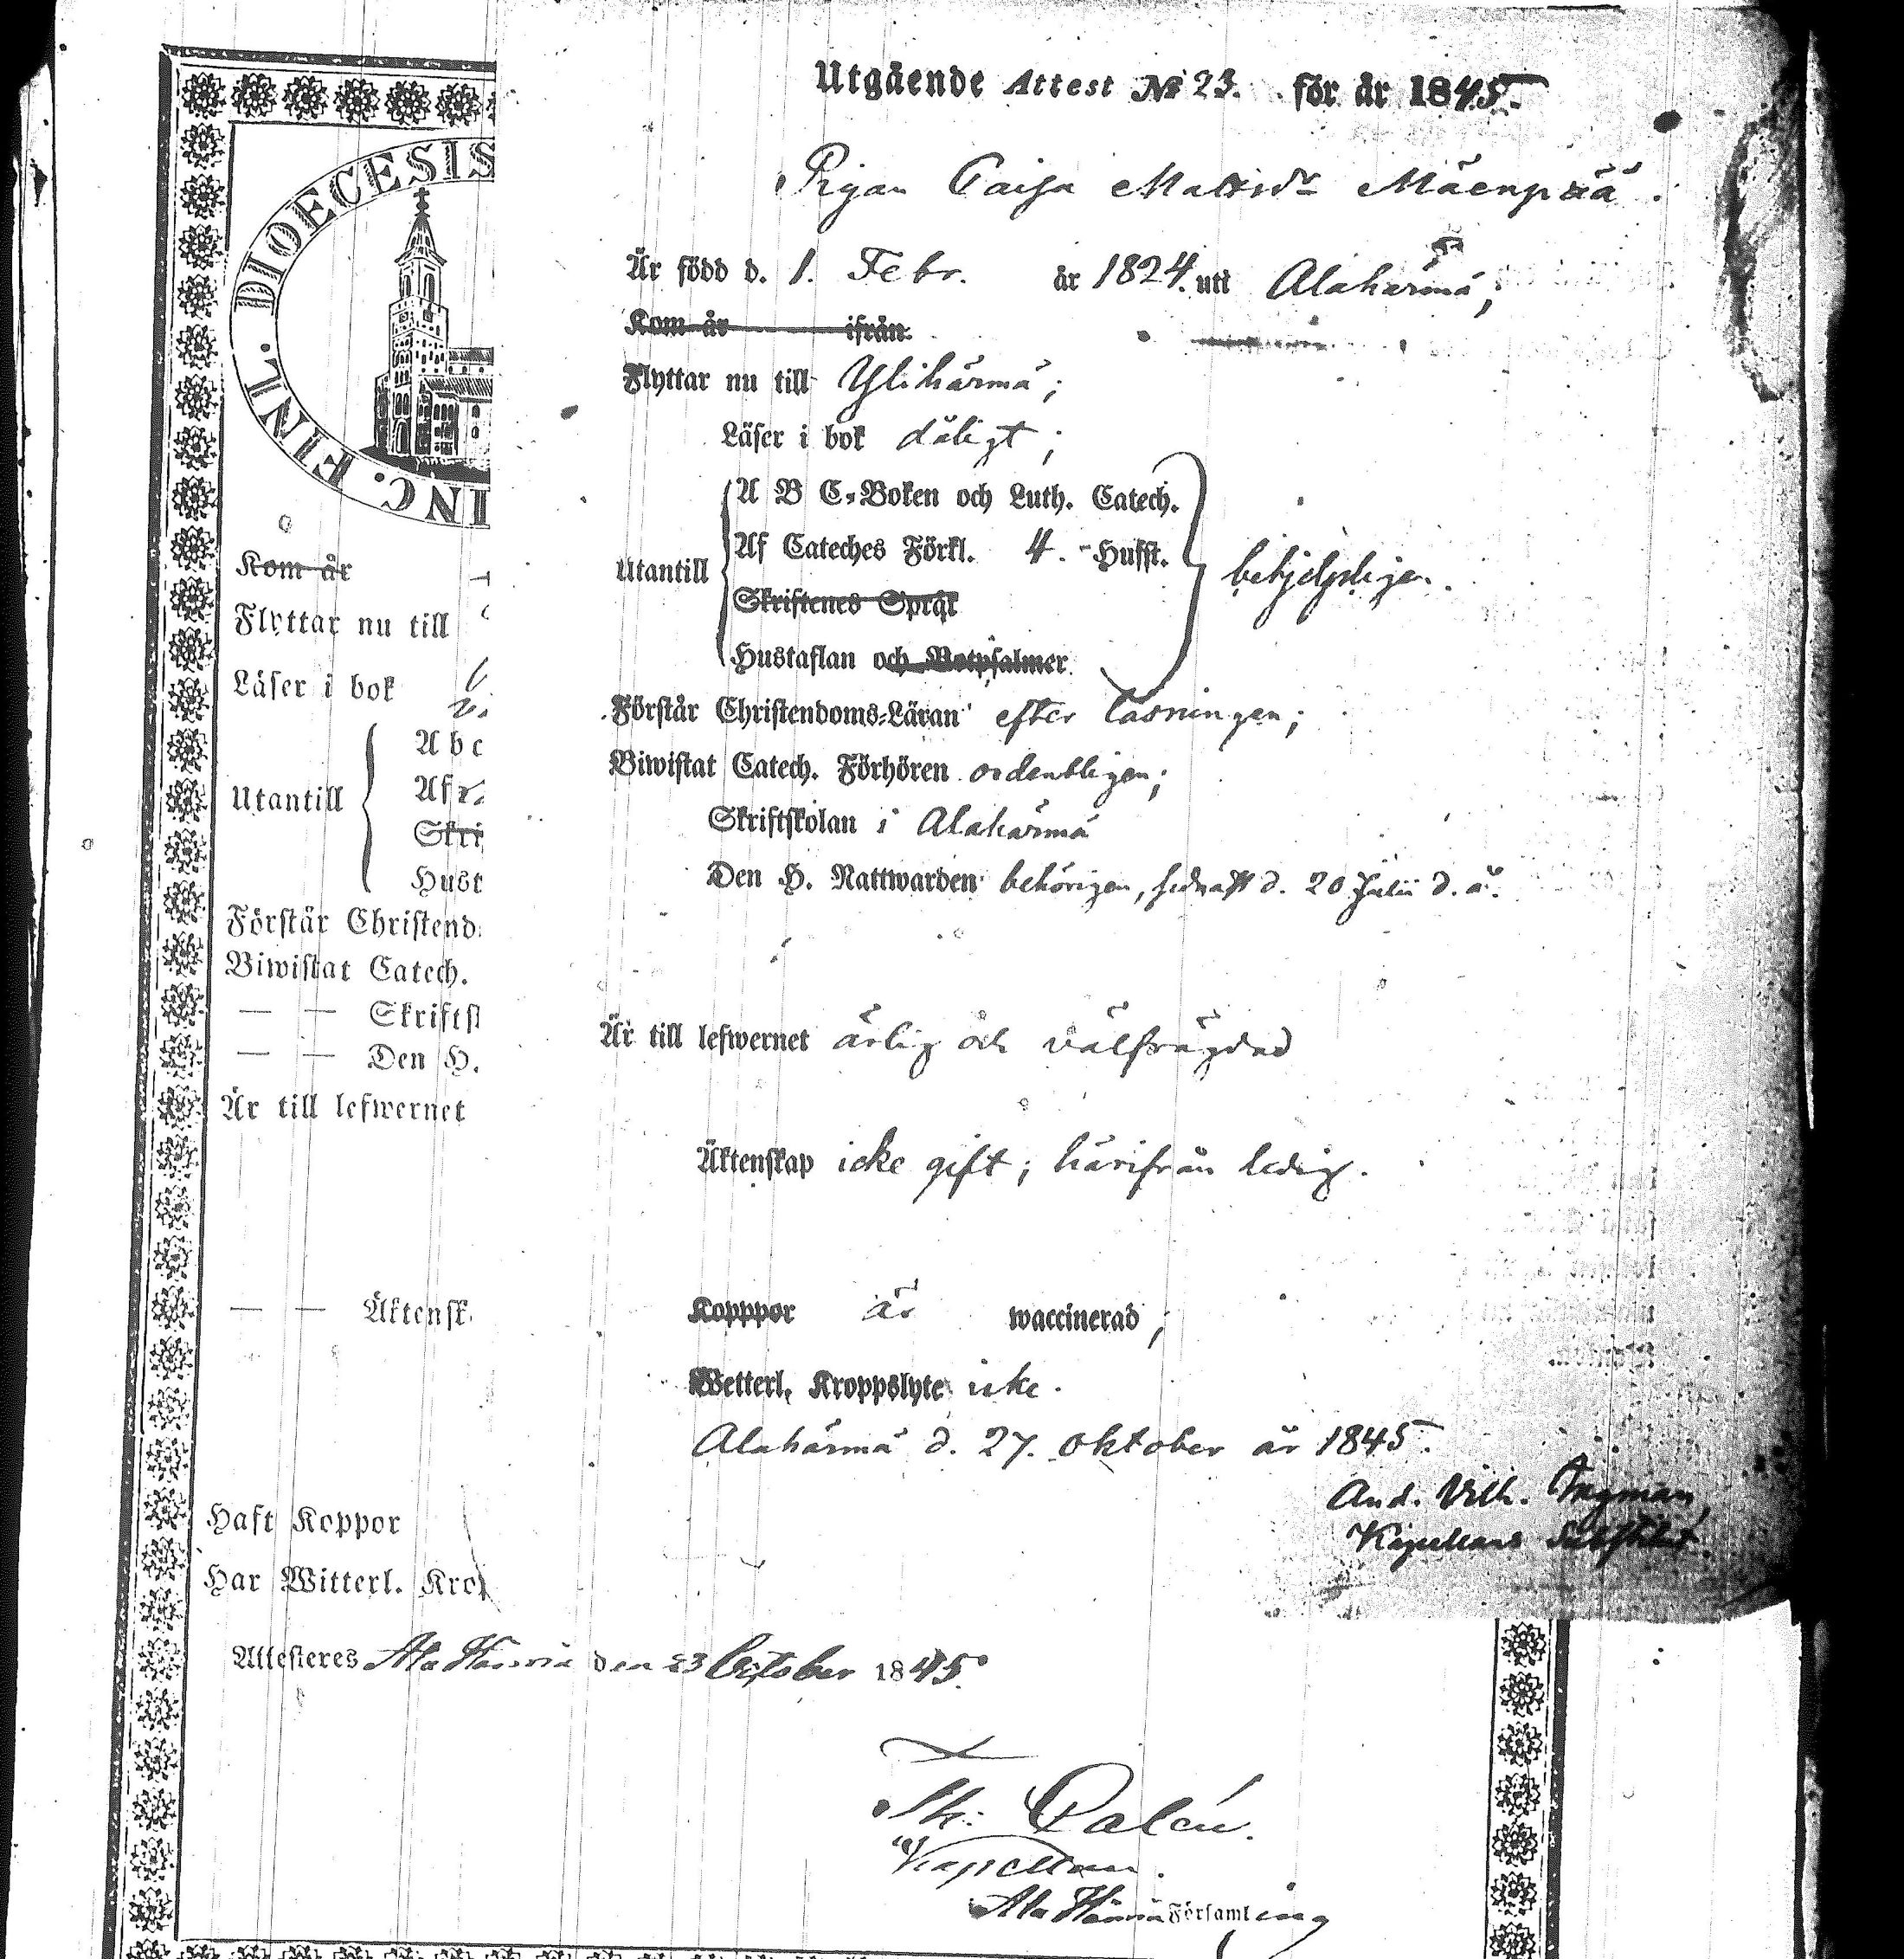 Utgående Attest № 23. för år 1845.
Pigan Caisa Matsdr Mäenpää.
Är född d. 1. Febr. år 1824. uti Alahärmä;
Kom år ifrån
Flyttar nu till Ylihärmä;
Läser i bok dåligt;
Utantill
A B C-Boken och Luth. Catech.
Af Cateches Förkl. 4. Husst.
Skriftenes Språk
Hustaflan och Botpsalmer
behjelpligen.
Förstår Christendoms-Läran efter läsningen;
Biwistat Catech. Förhören ordentligen;
Skriftskolan i Alahärmä
Den H. Nattwarden behörigen, sednast d. 20 Julii d. å.
Är till lefwernet ärlig och välfrägdad
Äktenskap icke gift; härifrån ledig.
Kopppor är waccinerad;
Wetterl. Kroppslyte icke.
Alahärmä d. 27. oktober år 1845.
And. Vilh. Ingman,
Kapellans Substitut.
DIOECESIS
INC. FINL.
Kom år
Flyttar nu till
Läser i bok
Utantill
Abc
Af
Skri
Hust
Förstår Christend.
Biwistat Catech.
— — Skriftsk
— — Den H.
Är till lefwernet
— — Äktensk.
Haft Koppor
Har Witterl. Krop
Attesteres Ala Härmä den 23 October 1845.
Kapellan.
Ala Härmä Församling